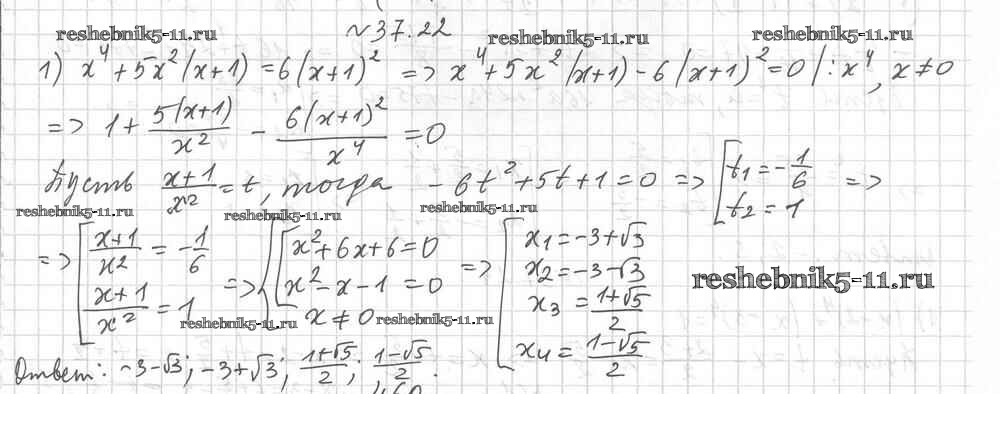 ~37.22
reshebnik5-11.ru reshebnik5-11.ru reshebnik5-11.ru
1) x⁴ + 5x²(x+1) = 6(x+1)² => x⁴ + 5x²(x+1) - 6(x+1)² = 0 |: x⁴, x ≠ 0
=> 1 + 5(x+1)/x² - 6(x+1)²/x⁴ = 0
Пусть (x+1)/x² = t, тогда -6t² + 5t + 1 = 0 => [t₁ = -1/6 =>
t₂ = 1
reshebnik5-11.ru reshebnik5-11.ru reshebnik5-11.ru
=> [(x+1)/x² = -1/6 => {[x² + 6x + 6 = 0 => [x₁ = -3+√3
(x+1)/x² = 1 x² - x - 1 = 0 x₂ = -3-√3
x ≠ 0 x₃ = (1+√5)/2
x₄ = (1-√5)/2
reshebnik5-11.ru
reshebnik5-11.ru reshebnik5-11.ru
Ответ: -3-√3; -3+√3; (1+√5)/2; (1-√5)/2.